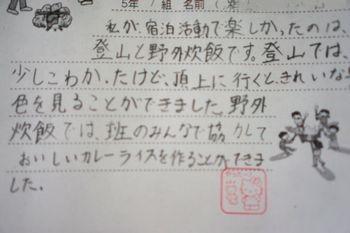 5年 1組 名前
私が、宿泊活動で楽しかったのは、
登山と野外炊飯です。登山では、
少しこわかったけど、頂上に行くときれいな
色を見ることができました。野外
炊飯では、班のみんなで協力して
おいしいカレーライスを作ることができま
した。